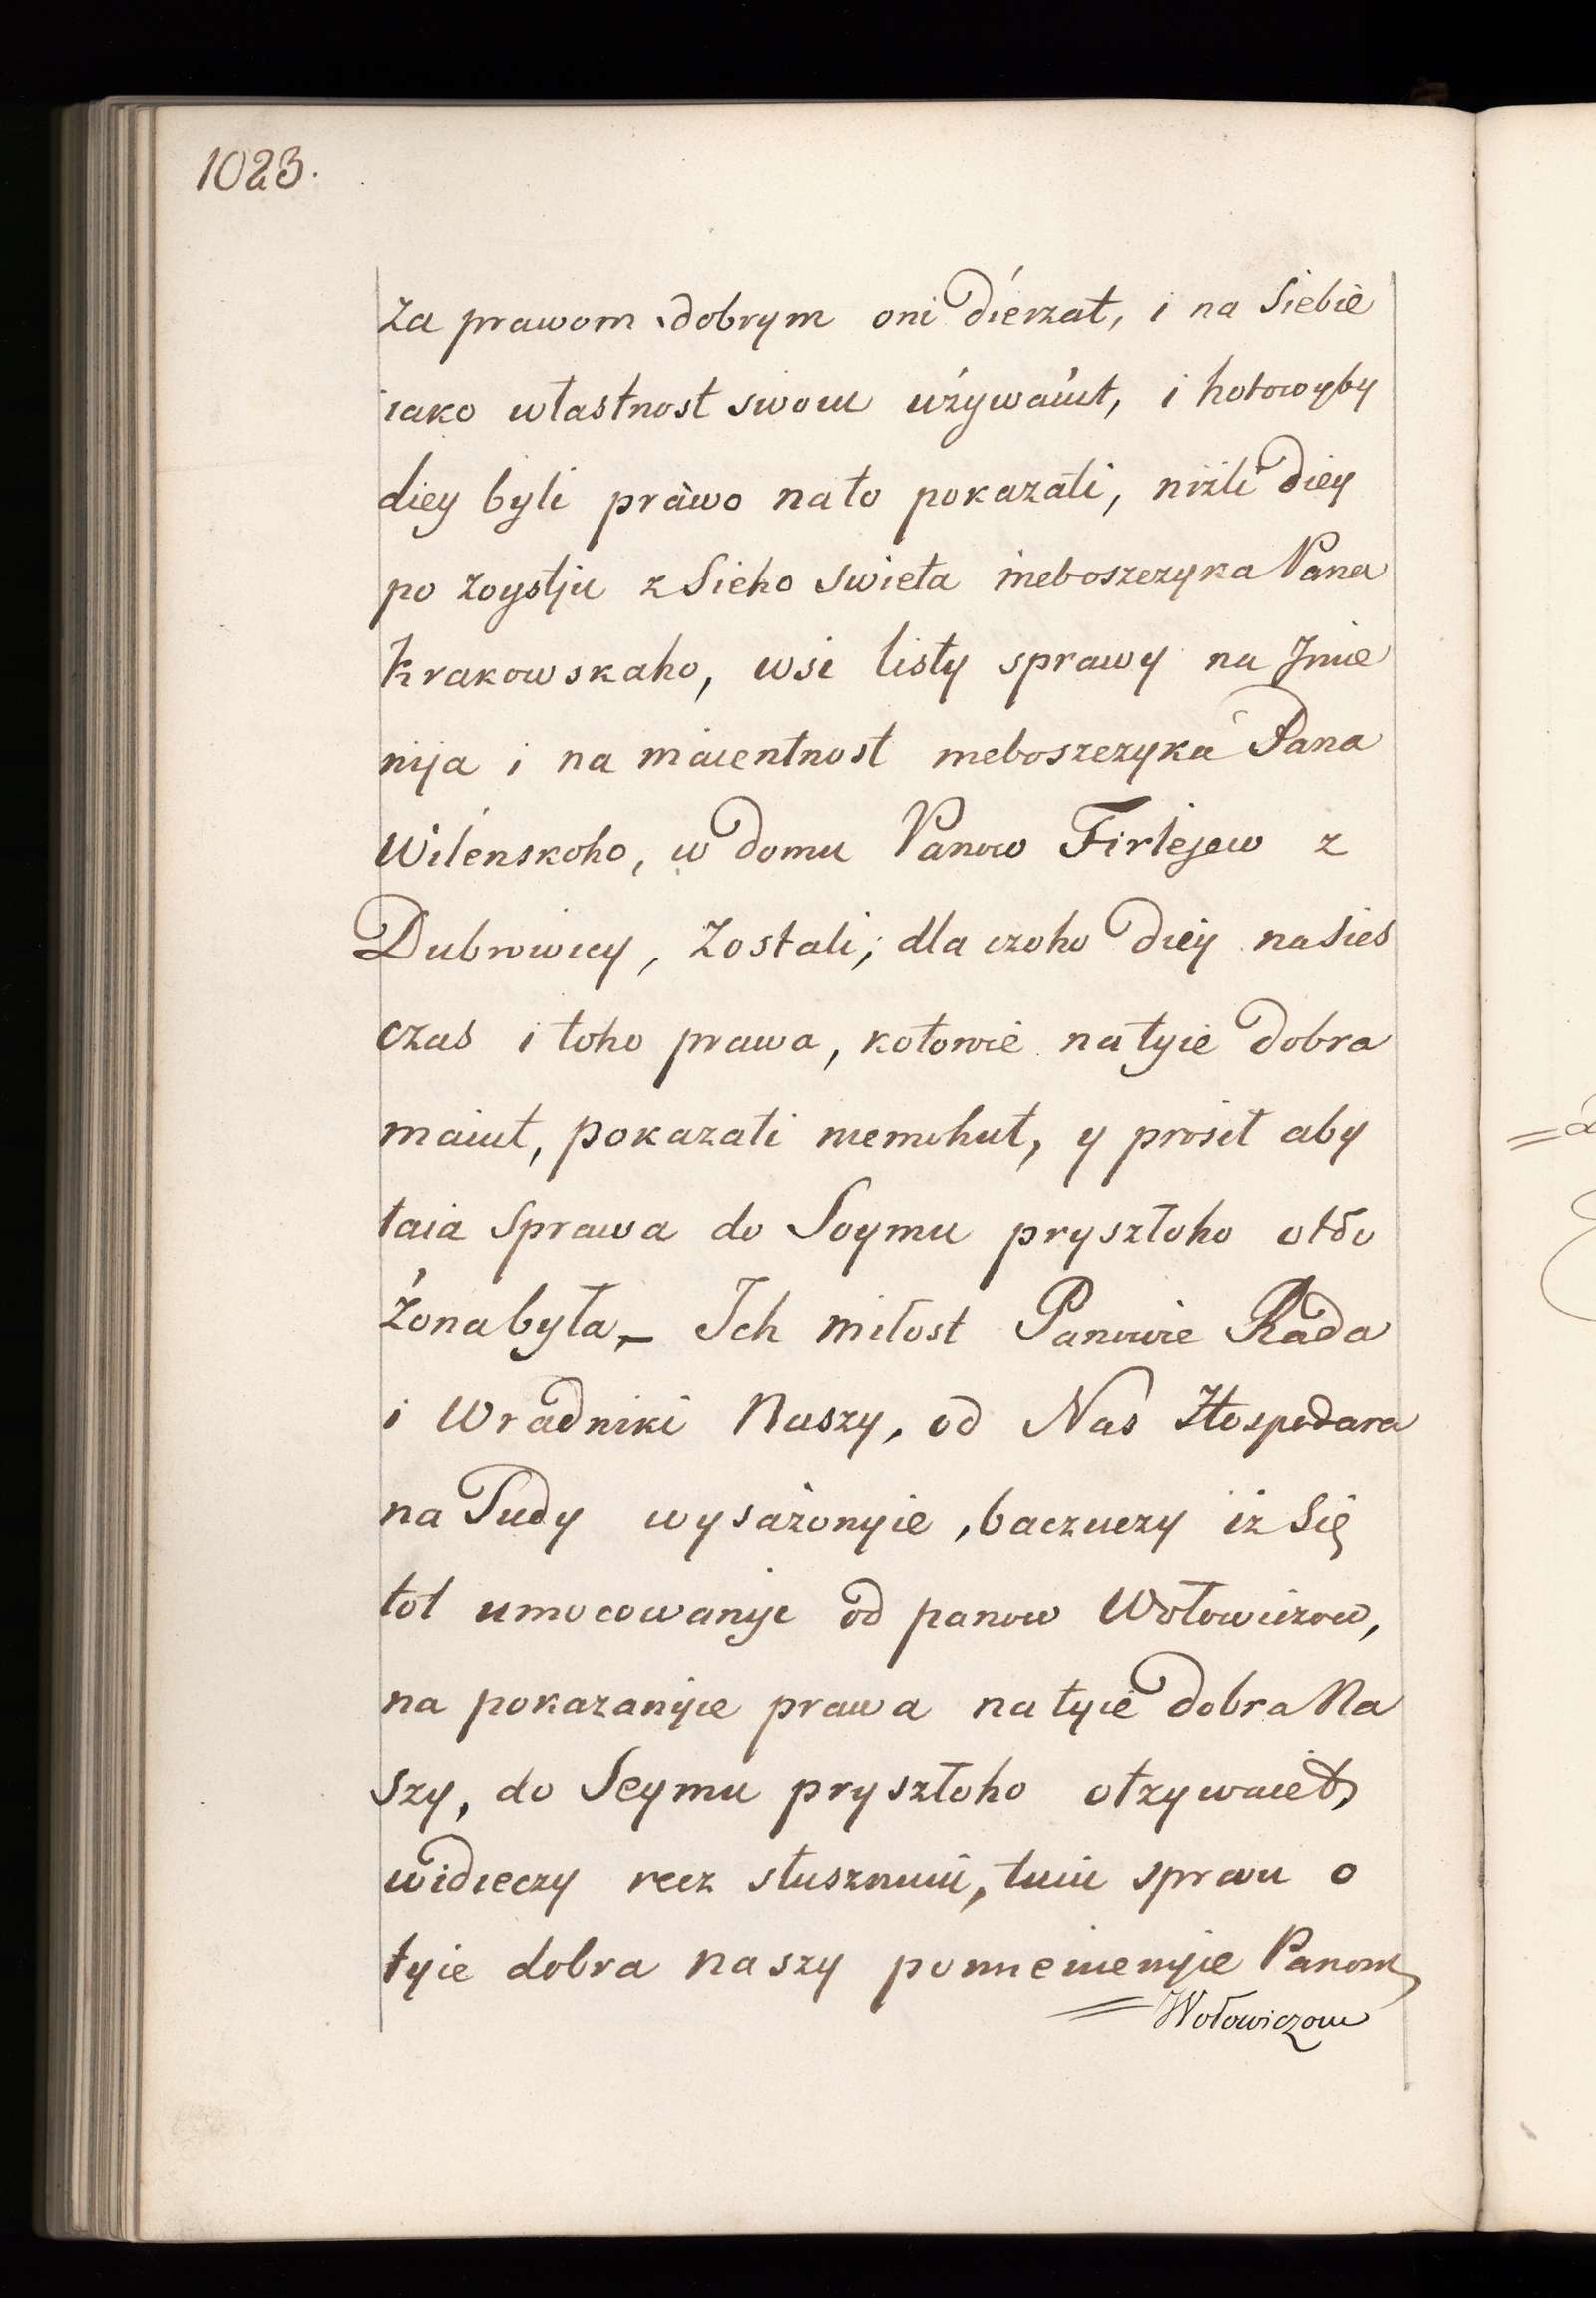 1023.
Za prawom dobrym oni dierzat, i na Siebie
iako wlastnost swoiu używaiut, i hotowyby
diey byli prawo nato pokazati, niżli diey
po zoystju z Sieho Swieta nieboszczyka Pana
Krakowskaho, wsi listy sprawy na Jmie
nija i na maientnost nieboszczyka Pana
Wilenskoho, w domu Panow Firlejew z
Dubrowicy, Zostali; dla czoho diey na Sies
czas i toho prawa, kotoroie na tyie dobra
maiut, pokazati niemohut, y prosit aby
taia Sprawa do Soymu pryszłoho otło
żona była, – Ich miłost Panowie Rada
i Wradniki Naszy, od Nas Hospodara
na Sudy wysażonyie, baczuczy iż Się
tot umocowanyje od panow Wołowiczow,
na pokazanyie prawa na tyie dobra Na
szy, do Seymu pryszłoho otzywaiet,
widieczy recz słusznuiu, tuiu sprawu o
tyie dobra naszy pomienienyie Panom
= Wołowiczom